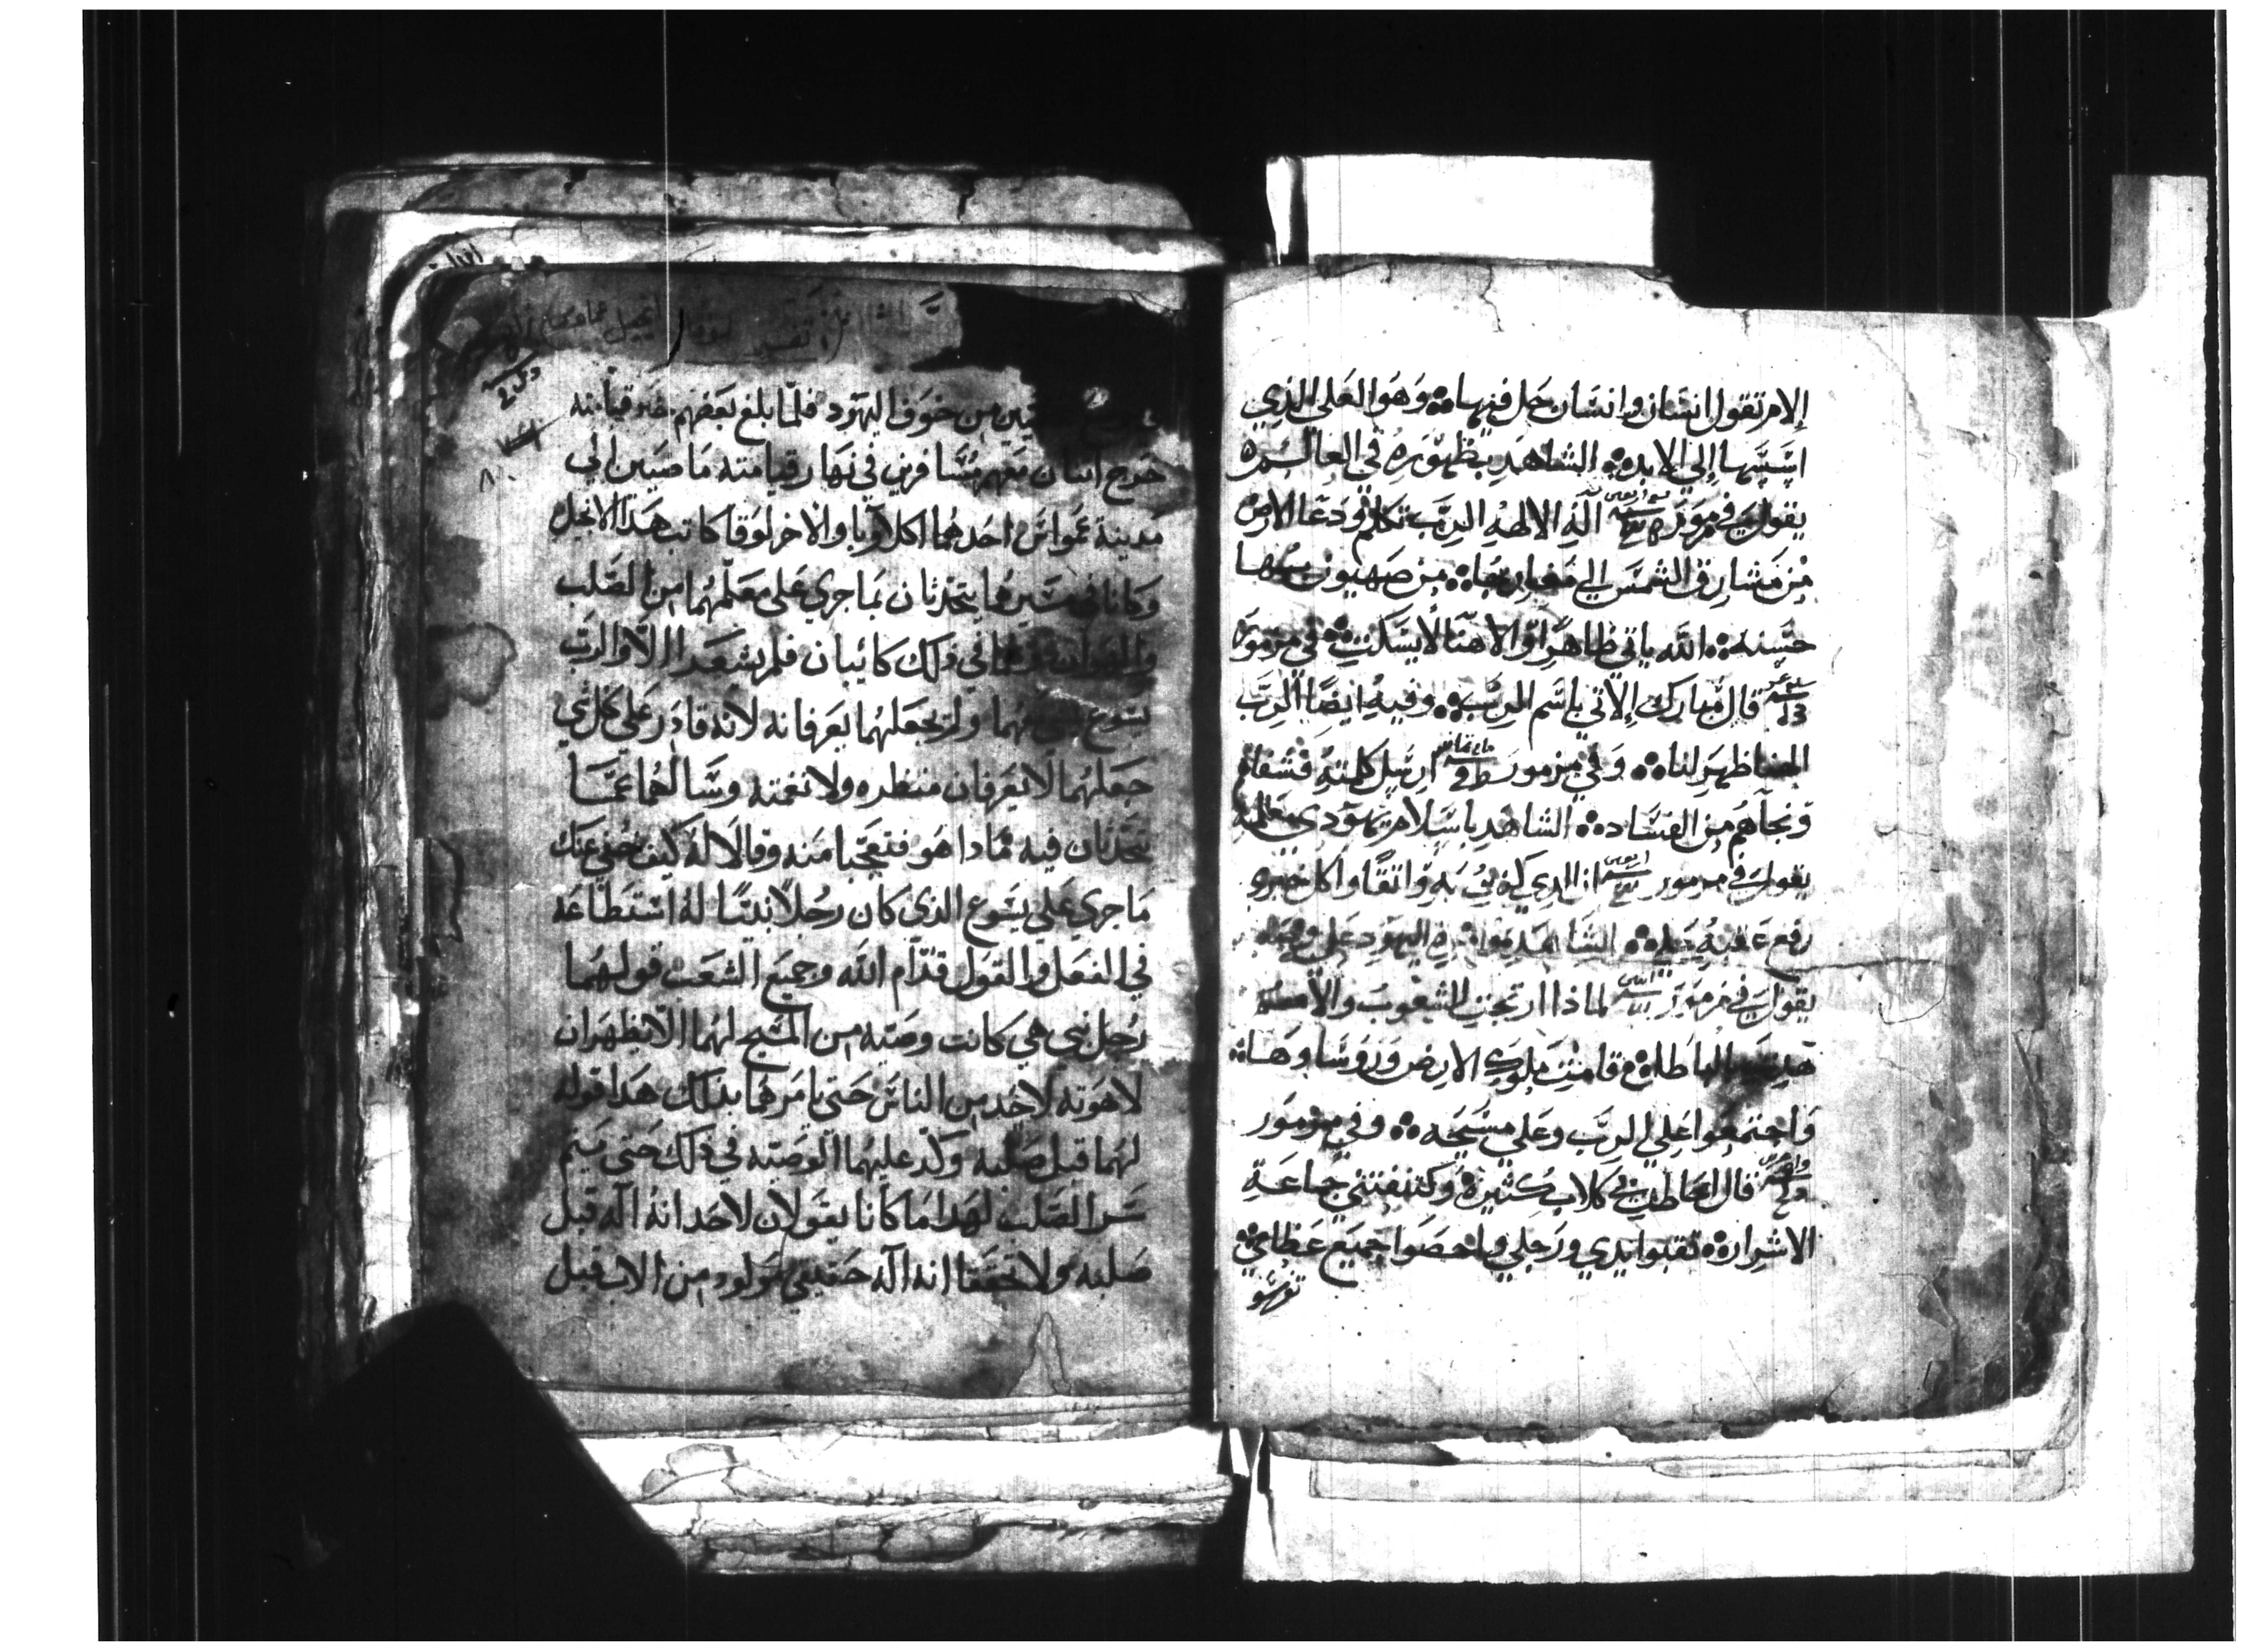 الام تقول انسان وانسان حل فيها وهو العلي الذي
اسسها إلي الابد الشاهد بظهوره في العالم
يقول في مزمور اله الالهه الرب تكلم ودعا الارض
من مشارق الشمس الي مغاربها من صهيون بها
حسنه الله ياتي ظاهرا والاهنا لا يسكت في مزمور
قال مبارك الاتي باسم الرب وفيه ايضا الرب
الهنا ظهر لنا وفي مزمور ارسل كلمته فشفاهم
ونجاهم من الفساد الشاهد باسلام يهودي معلمه
يقول في مزمور ان الذي كنت به واثقا واكل خبزي
رفع عقبه الشاهد اليهود علي
يقول في مزمور لماذا ارتجت الشعوب والامم
هذت الباطله قامت ملوك الارض وروساوها
واجتمعوا علي الرب وعلي مسيحه وفي مزمور
قال احاطت بي كلاب كثيرة وكتنفتني جماعة
الاشرار ثقبوا يدي ورجلي واحصوا جميع عظامي
من خوف اليهود فلما بلغ بعضهم خبر قيامته
خرج اتنان معهم مسافرين في نهار قيامته ماضيين الي
مدينة عمواس احدهما اكلاوبا والاخر لوقا كاتب هذا الانجيل
وكانا في مسيرهما يتحدثان بما جري علي معلمهما من الصلب
والهوان في ذلك كائبان فلم يشعرا الا والرب
يسوع ولم يجعلهما يعرفانه لانه قادر علي كل شي
جعلهما لا يعرفان منظره ولا نغمته وسالهما عما
يتحدثان فيه مادا هو فتعجبا منه وقالا له كيف خفي عنك
ما جري علي يسوع الذي كان رجلا نبيا له استطاعه
في الفعل والقول قدام الله وجميع الشعب قولهما
رجل نبي هي كانت وصيه من المسيح لهما الا يظهران
لاهوته لاحد من الناس حتي يامرهما بذلك هدا قوله
لهما قبل صلبه وكد عليهما الوصيه في ذلك حتي يتم
سر الصلب لهدا ما كانا يقولان لاحد انه اله قبل
صلبه ولا تحققا انه اله حقيقي مولود من الاب قبل